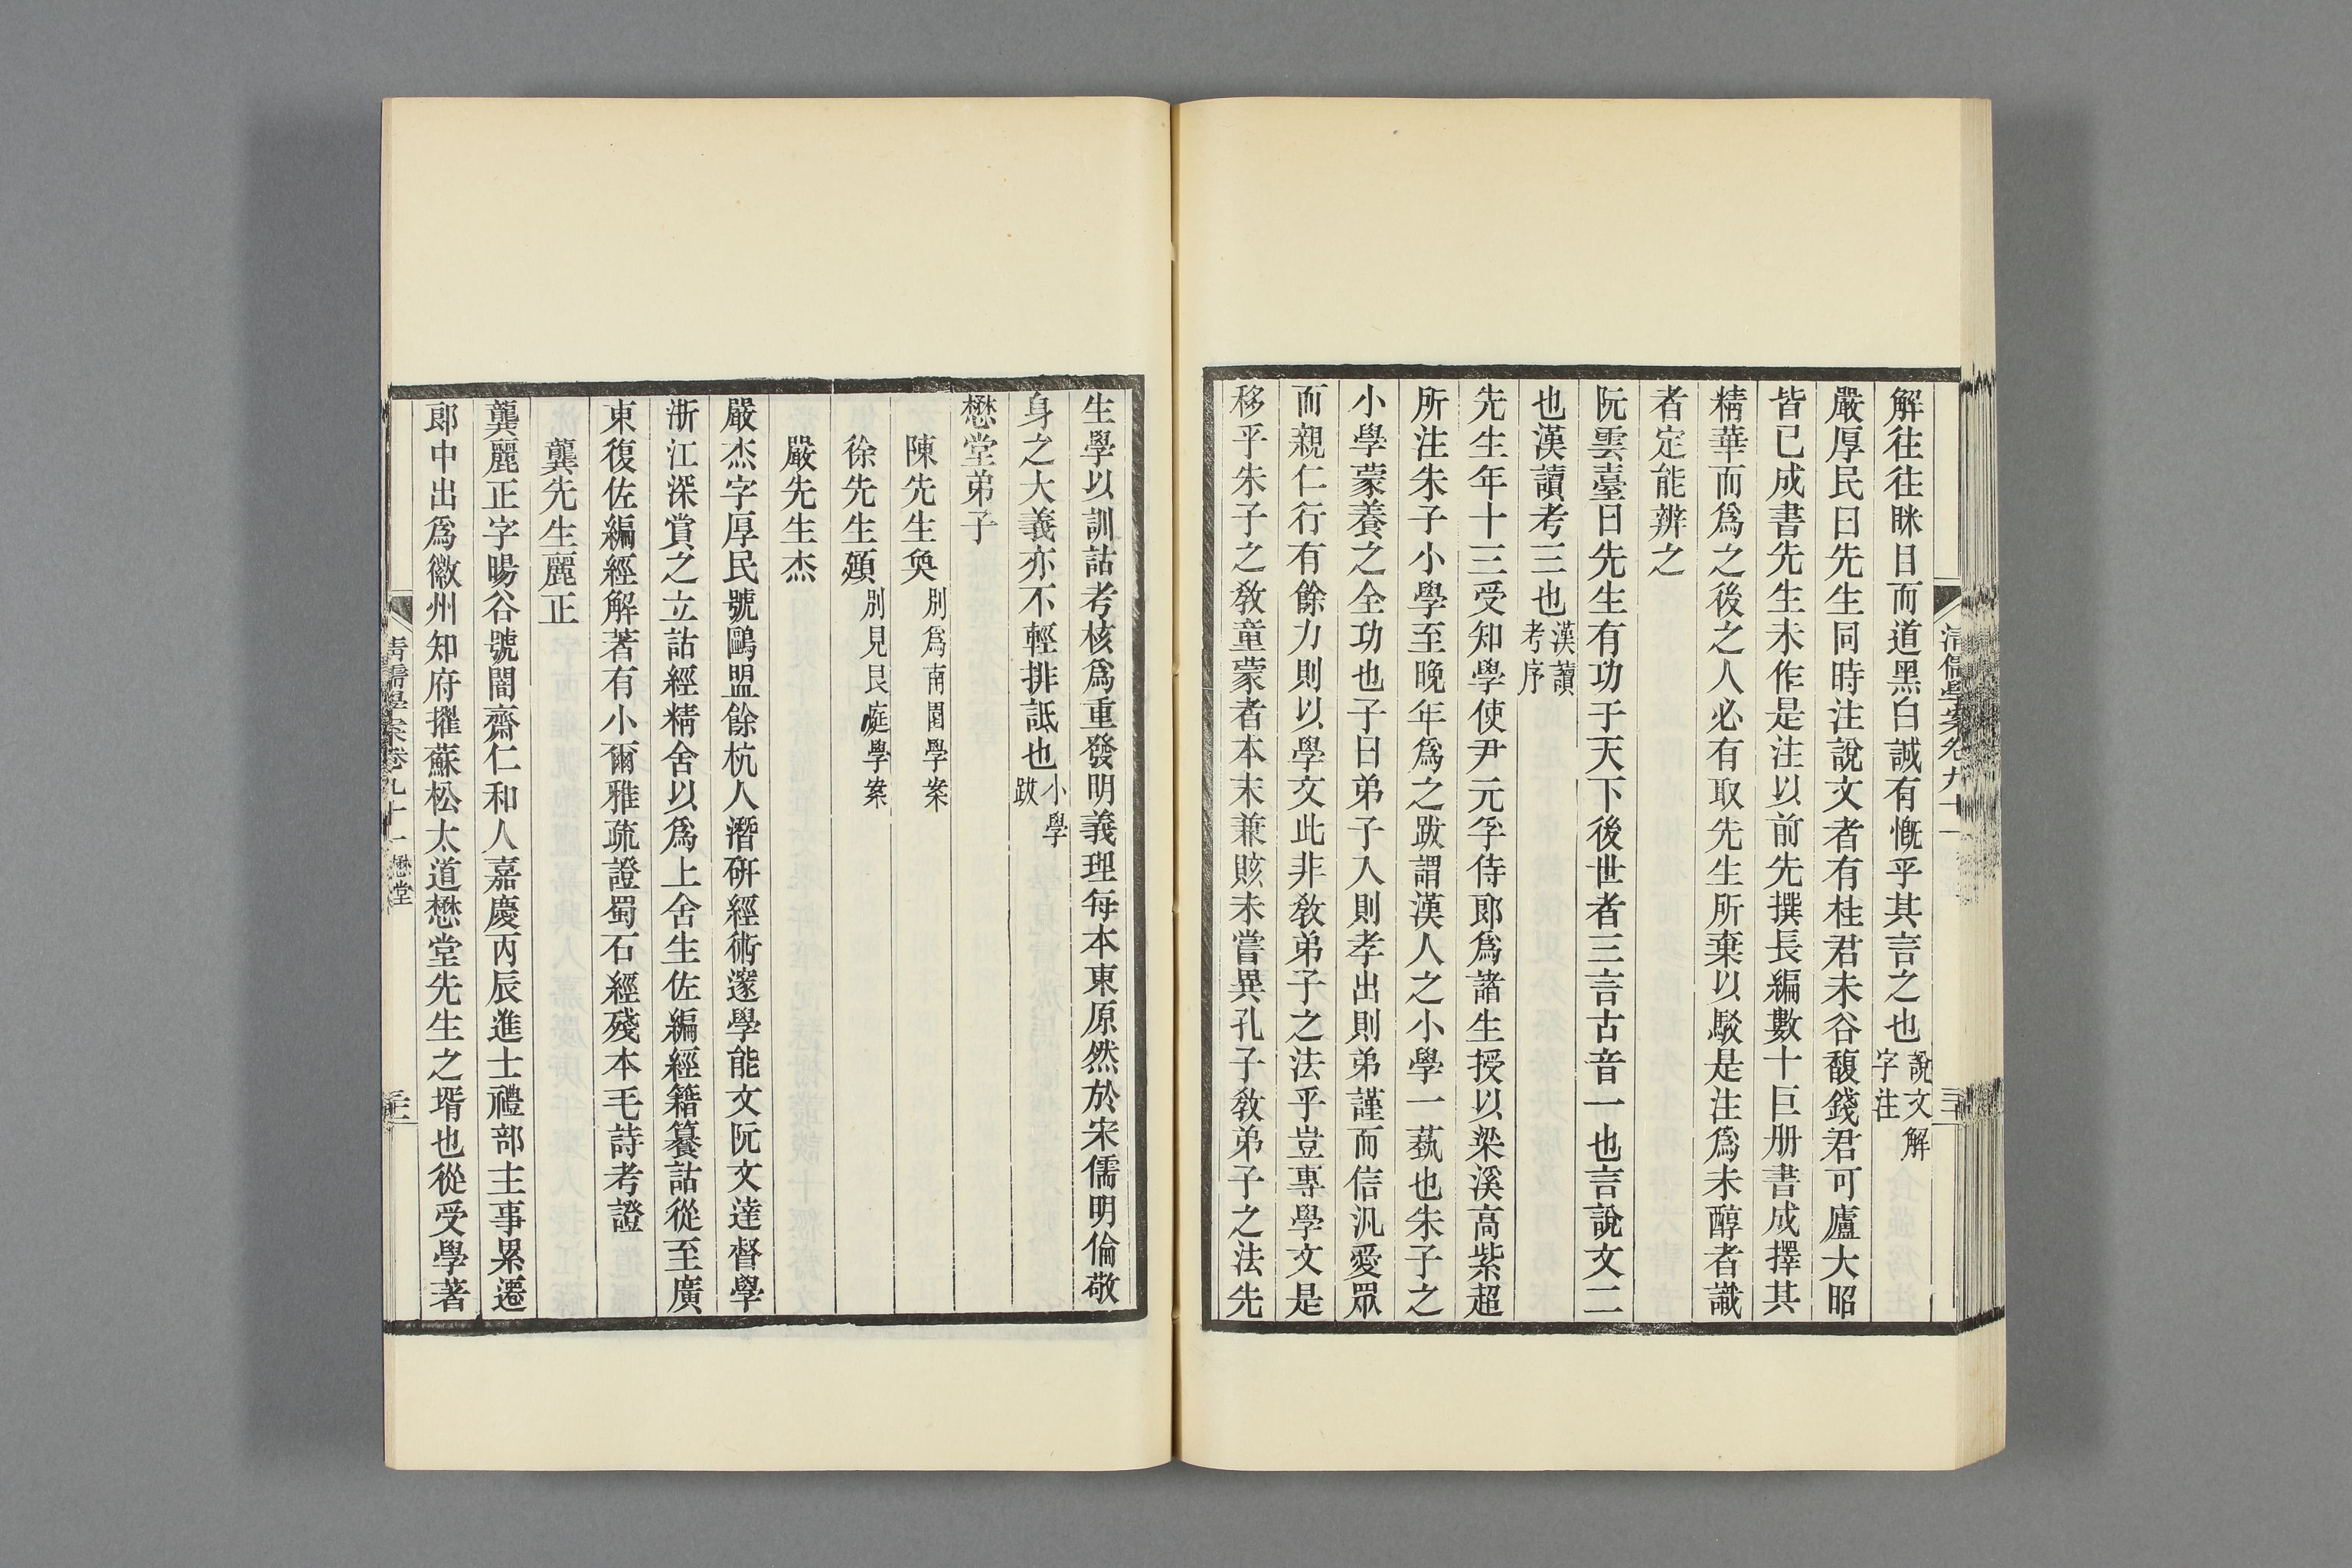 清儒學案卷九十一
解往往眯目而道黑白誠有慨乎其言之也說文解字注
嚴厚民曰先生同時注說文者有桂君未谷馥錢君可廬大昭
皆已成書先生未作是注以前先撰長編數十巨册書成擇其
精華而爲之後之人必有取先生所棄以駁是注爲未醇者識
者定能辨之
阮雲臺曰先生有功于天下後世者三言古音一也言說文二
也漢讀考三也漢讀考序
先生年十三受知學使尹元孚侍郎爲諸生授以梁溪高紫超
所注朱子小學至晚年爲之跋謂漢人之小學一蓺也朱子之
小學蒙養之全功也子曰弟子入則孝出則弟謹而信汎愛眾
而親仁行有餘力則以學文此非敎弟子之法乎豈專學文是
移乎朱子之敎童蒙者本末兼賅未嘗異孔子敎弟子之法先
生學以訓詁考核爲重發明義理每本東原然於宋儒明倫敬
身之大義亦不輕排詆也小學跋
懋堂弟子
陳先生奐別爲南園學案
徐先生頲別見艮庭學案
嚴先生杰
嚴杰字厚民號鷗盟餘杭人潛硏經術邃學能文阮文達督學
浙江深賞之立詁經精舍以爲上舍生佐編經籍籑詁從至廣
東復佐編經解著有小爾雅疏證蜀石經殘本毛詩考證
龔先生麗正
龔麗正字暘谷號闇齋仁和人嘉慶丙辰進士禮部主事累遷
郎中出爲徽州知府擢蘇松太道懋堂先生之壻也從受學著
清儒學案卷九十一 懋堂